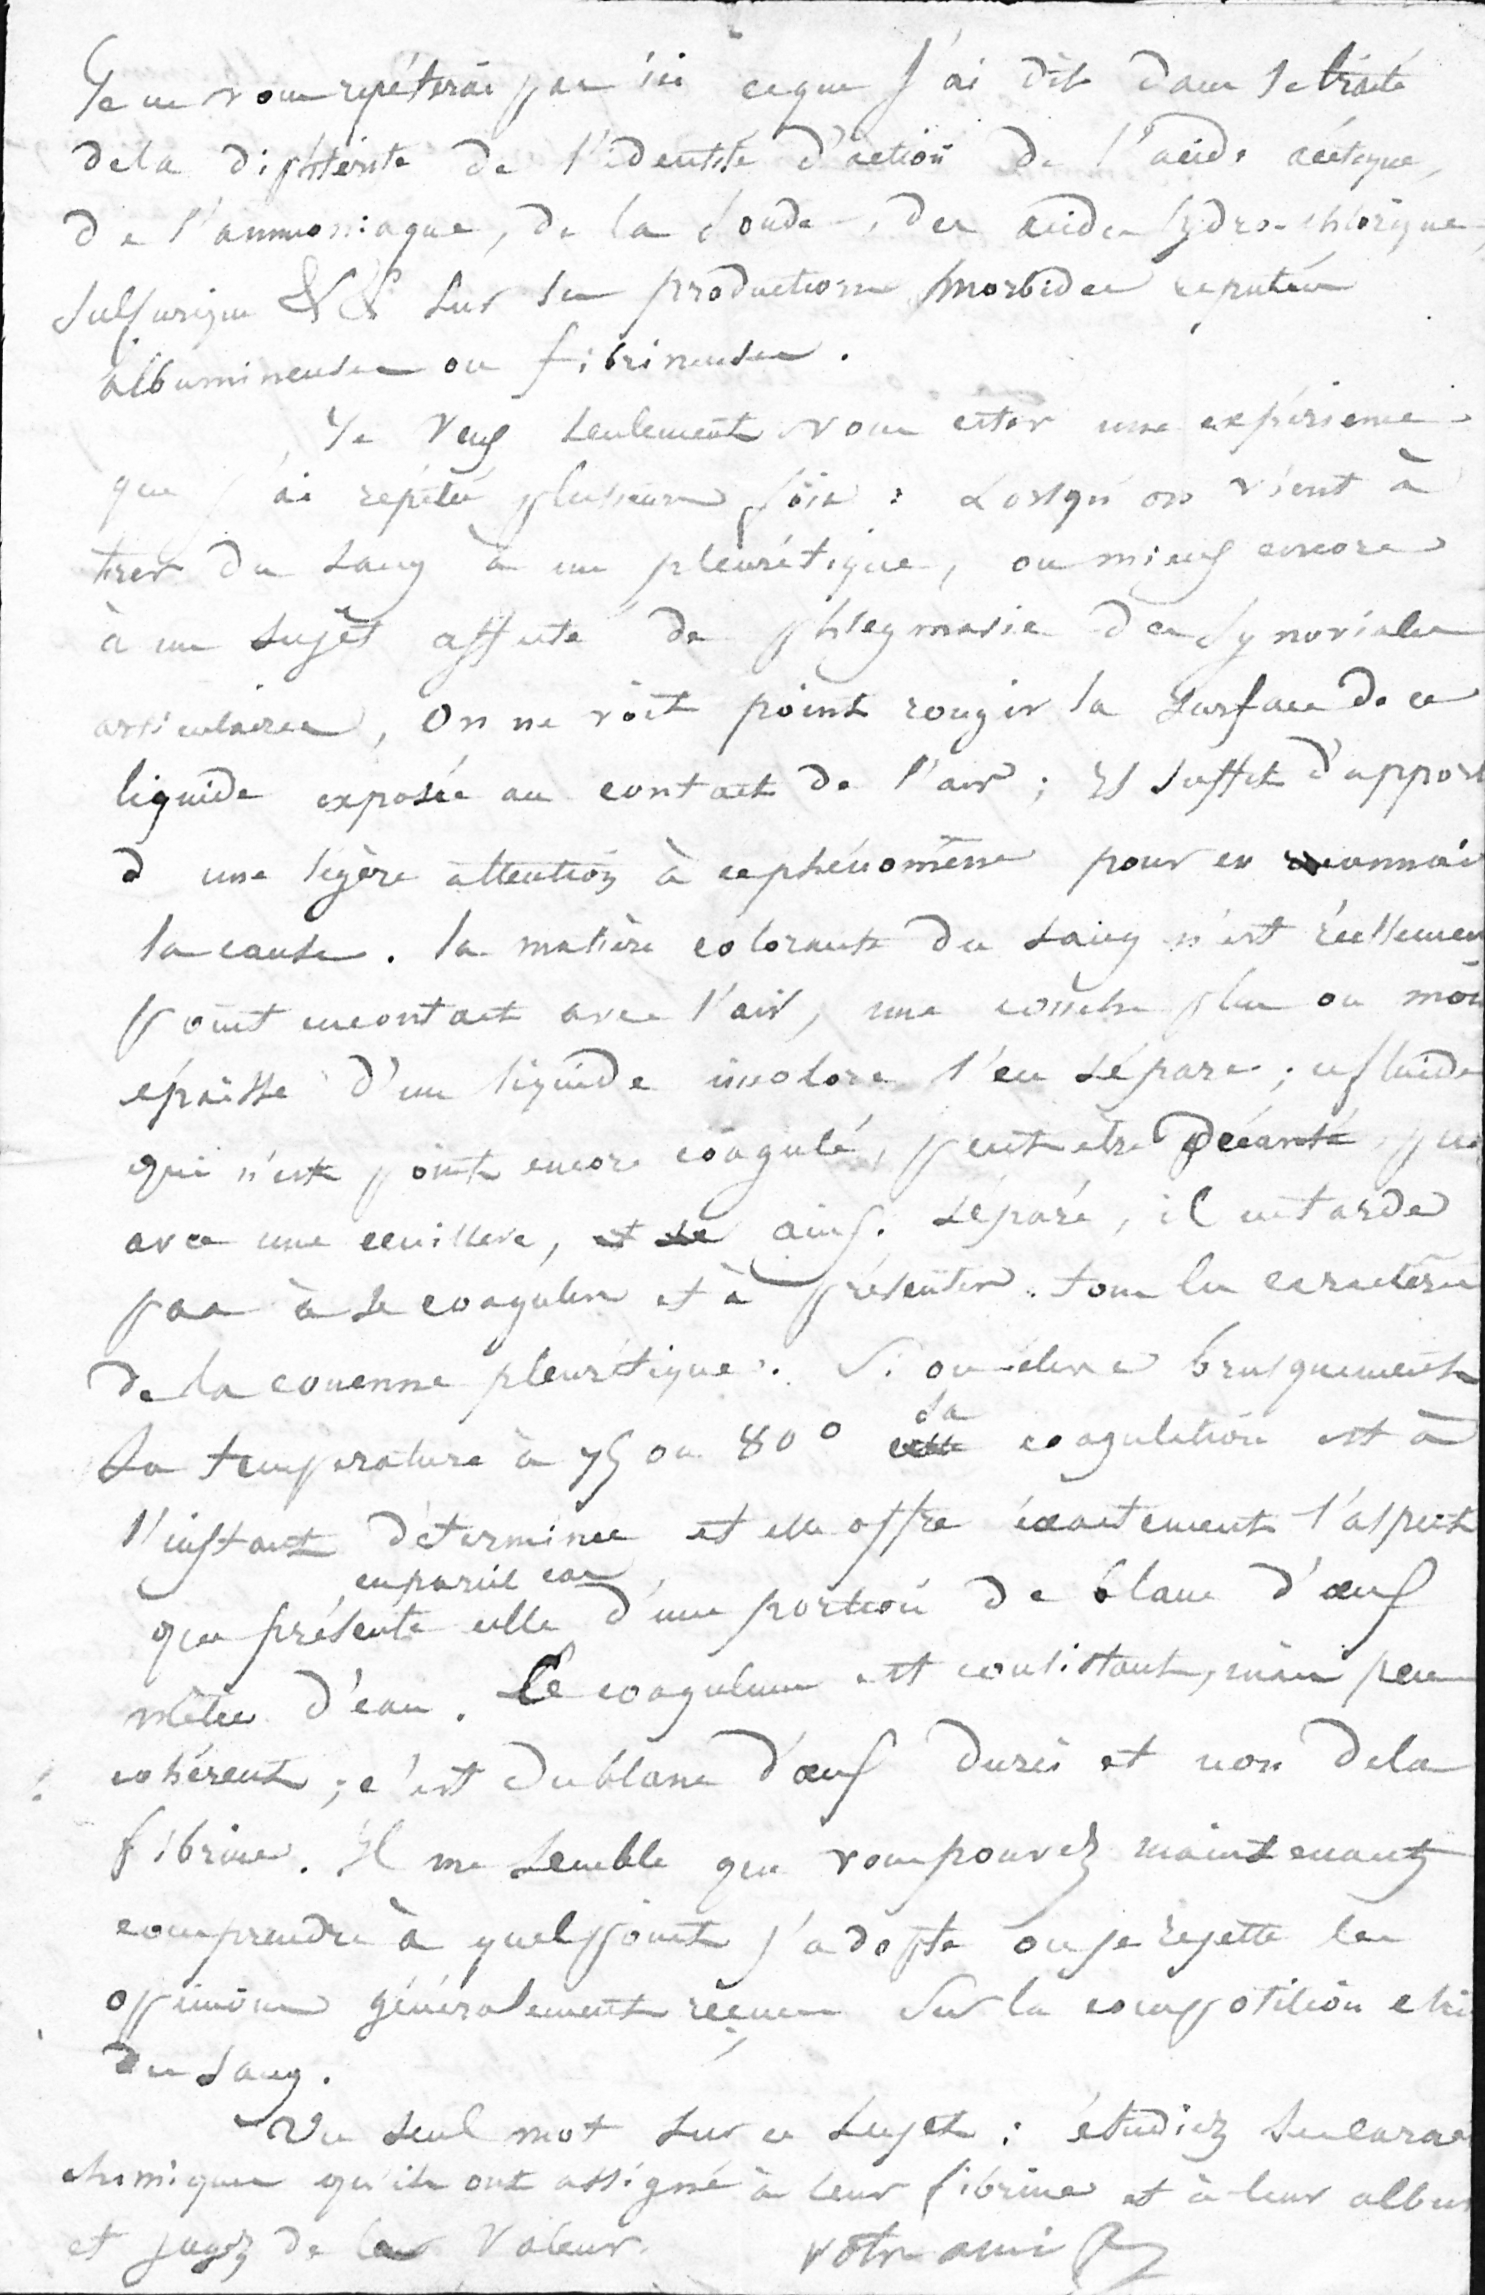 Je ne vous répéterai pas ici ce que j'ai dit dans le traité
de la diphtérite de l'identité d'action de l'acide acétique,
de l'ammoniaque, de la soude, des acides hydro-chlorique,
sulfurique &c &c sur les productions morbides reputées
albumineuses ou fibrineuses.
Je veux seulement vous citer une expérience
que j'ai repétée plusieurs fois : Lorsqu'on vient à
tirer du sang à un pleurétique, ou mieux encore
à un sujet affecté de phlegmasie des synoviales
articulaires, on ne voit point rougir la surface de ce
liquide exposée au contact de l'air ; il suffit d'apport
d une légère attention à ce phénomène pour en reconnai
la cause. la matière colorante du sang n'est réellemen
point en contact avec l'air, une couche plus ou moin
épaisse d'un liquide incolore l'en sépare ; ce fluide
qui n'est point encore coagulé, peut etre décanté, pui
avec une cuillere, et se ainsi séparé, il ne tarde
pas à se coaguler et à présenter tous les caractères
de la couenne pleurétique. Si on élève brusquement
sa température à 75 ou 80° cette sa coagulation est à
l'instant déterminée et elle offre éxactement l'aspect
que présente en pareil cas celle d'une portion de blanc d'œuf
mêlée d'eau. Ce coagulum est consistant, mais peu
cohérent ; c'est du blanc d'œuf durci et non de la
fibrine. Il me semble que vous pouvez maintenant
comprendre à quel point j'adopte ou je rejette les
opinions généralement reçues sur la composition chi
du sang.
Un seul mot sur ce sujet : étudiez les carac
chimiques qu'ils ont assigné à leur fibrine et à leur albu
et jugez de leur valeur. votre ami